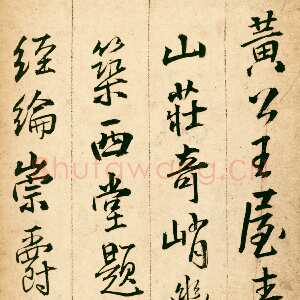 黃公王屋
山莊奇峭
築西堂題
經綸崇爵
shufawang.cn